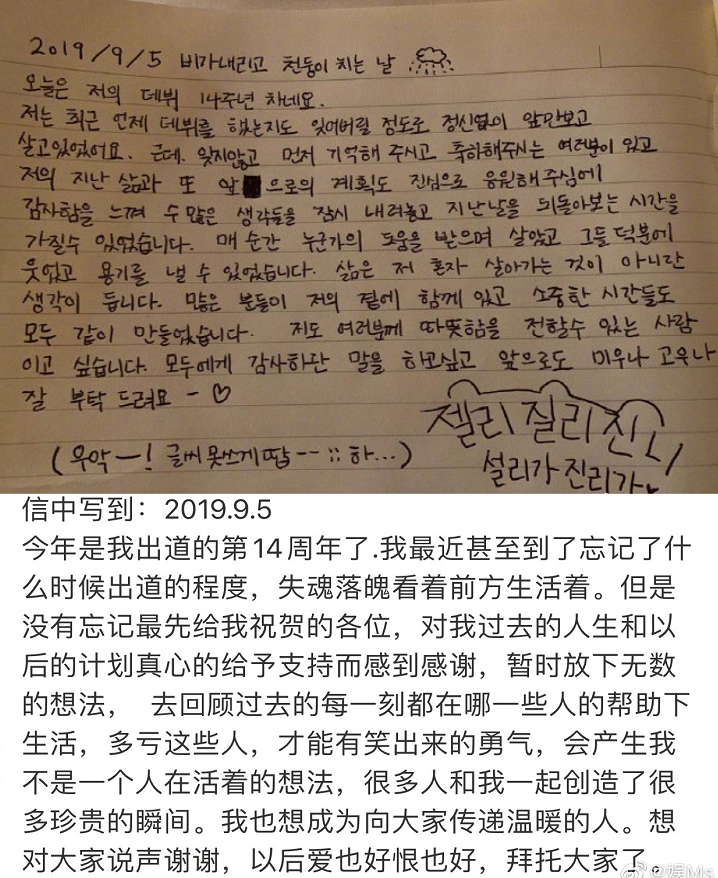 2019/9/5 비가내리고 천둥이 치는 날
오늘은 저의 데뷔 14주년 차네요.
저는 최근 언제 데뷔를 했는지도 잊어버릴 정도로 정신없이 앞만보고
살고있었어요. 근데. 잊지않고 먼저 기억해 주시고 축하해주시는 여러분이 있고
저의 지난 삶과 또 앞으로의 계획도 진심으로 응원해 주심에
감사함을 느껴 수 많은 생각들을 잠시 내려놓고 지난날을 뒤돌아보는 시간을
가질수 있었습니다. 매 순간 누군가의 도움을 받으며 살았고 그들 덕분에
웃었고 용기를 낼 수 있었습니다. 삶은 저 혼자 살아가는 것이 아니란
생각이 듭니다. 많은 분들이 저의 곁에 함께 있고 소중한 시간들도
모두 같이 만들었습니다. 저도 여러분께 따뜻함을 전할수 있는 사람
이고 싶습니다. 모두에게 감사하단 말을 하고싶고 앞으로도 미우나 고우나
잘 부탁 드려요 - ♡
젤리 질리 진리
(우악-! 글씨못쓰게땁--;; 하...)
설리가 진리가
信中写到：2019.9.5
今年是我出道的第14周年了.我最近甚至到了忘记了什
么时候出道的程度，失魂落魄看着前方生活着。但是
没有忘记最先给我祝贺的各位，对我过去的人生和以
后的计划真心的给予支持而感到感谢，暂时放下无数
的想法， 去回顾过去的每一刻都在哪一些人的帮助下
生活，多亏这些人，才能有笑出来的勇气，会产生我
不是一个人在活着的想法，很多人和我一起创造了很
多珍贵的瞬间。我也想成为向大家传递温暖的人。想
对大家说声谢谢，以后爱也好恨也好，拜托大家了。
@娱Ms